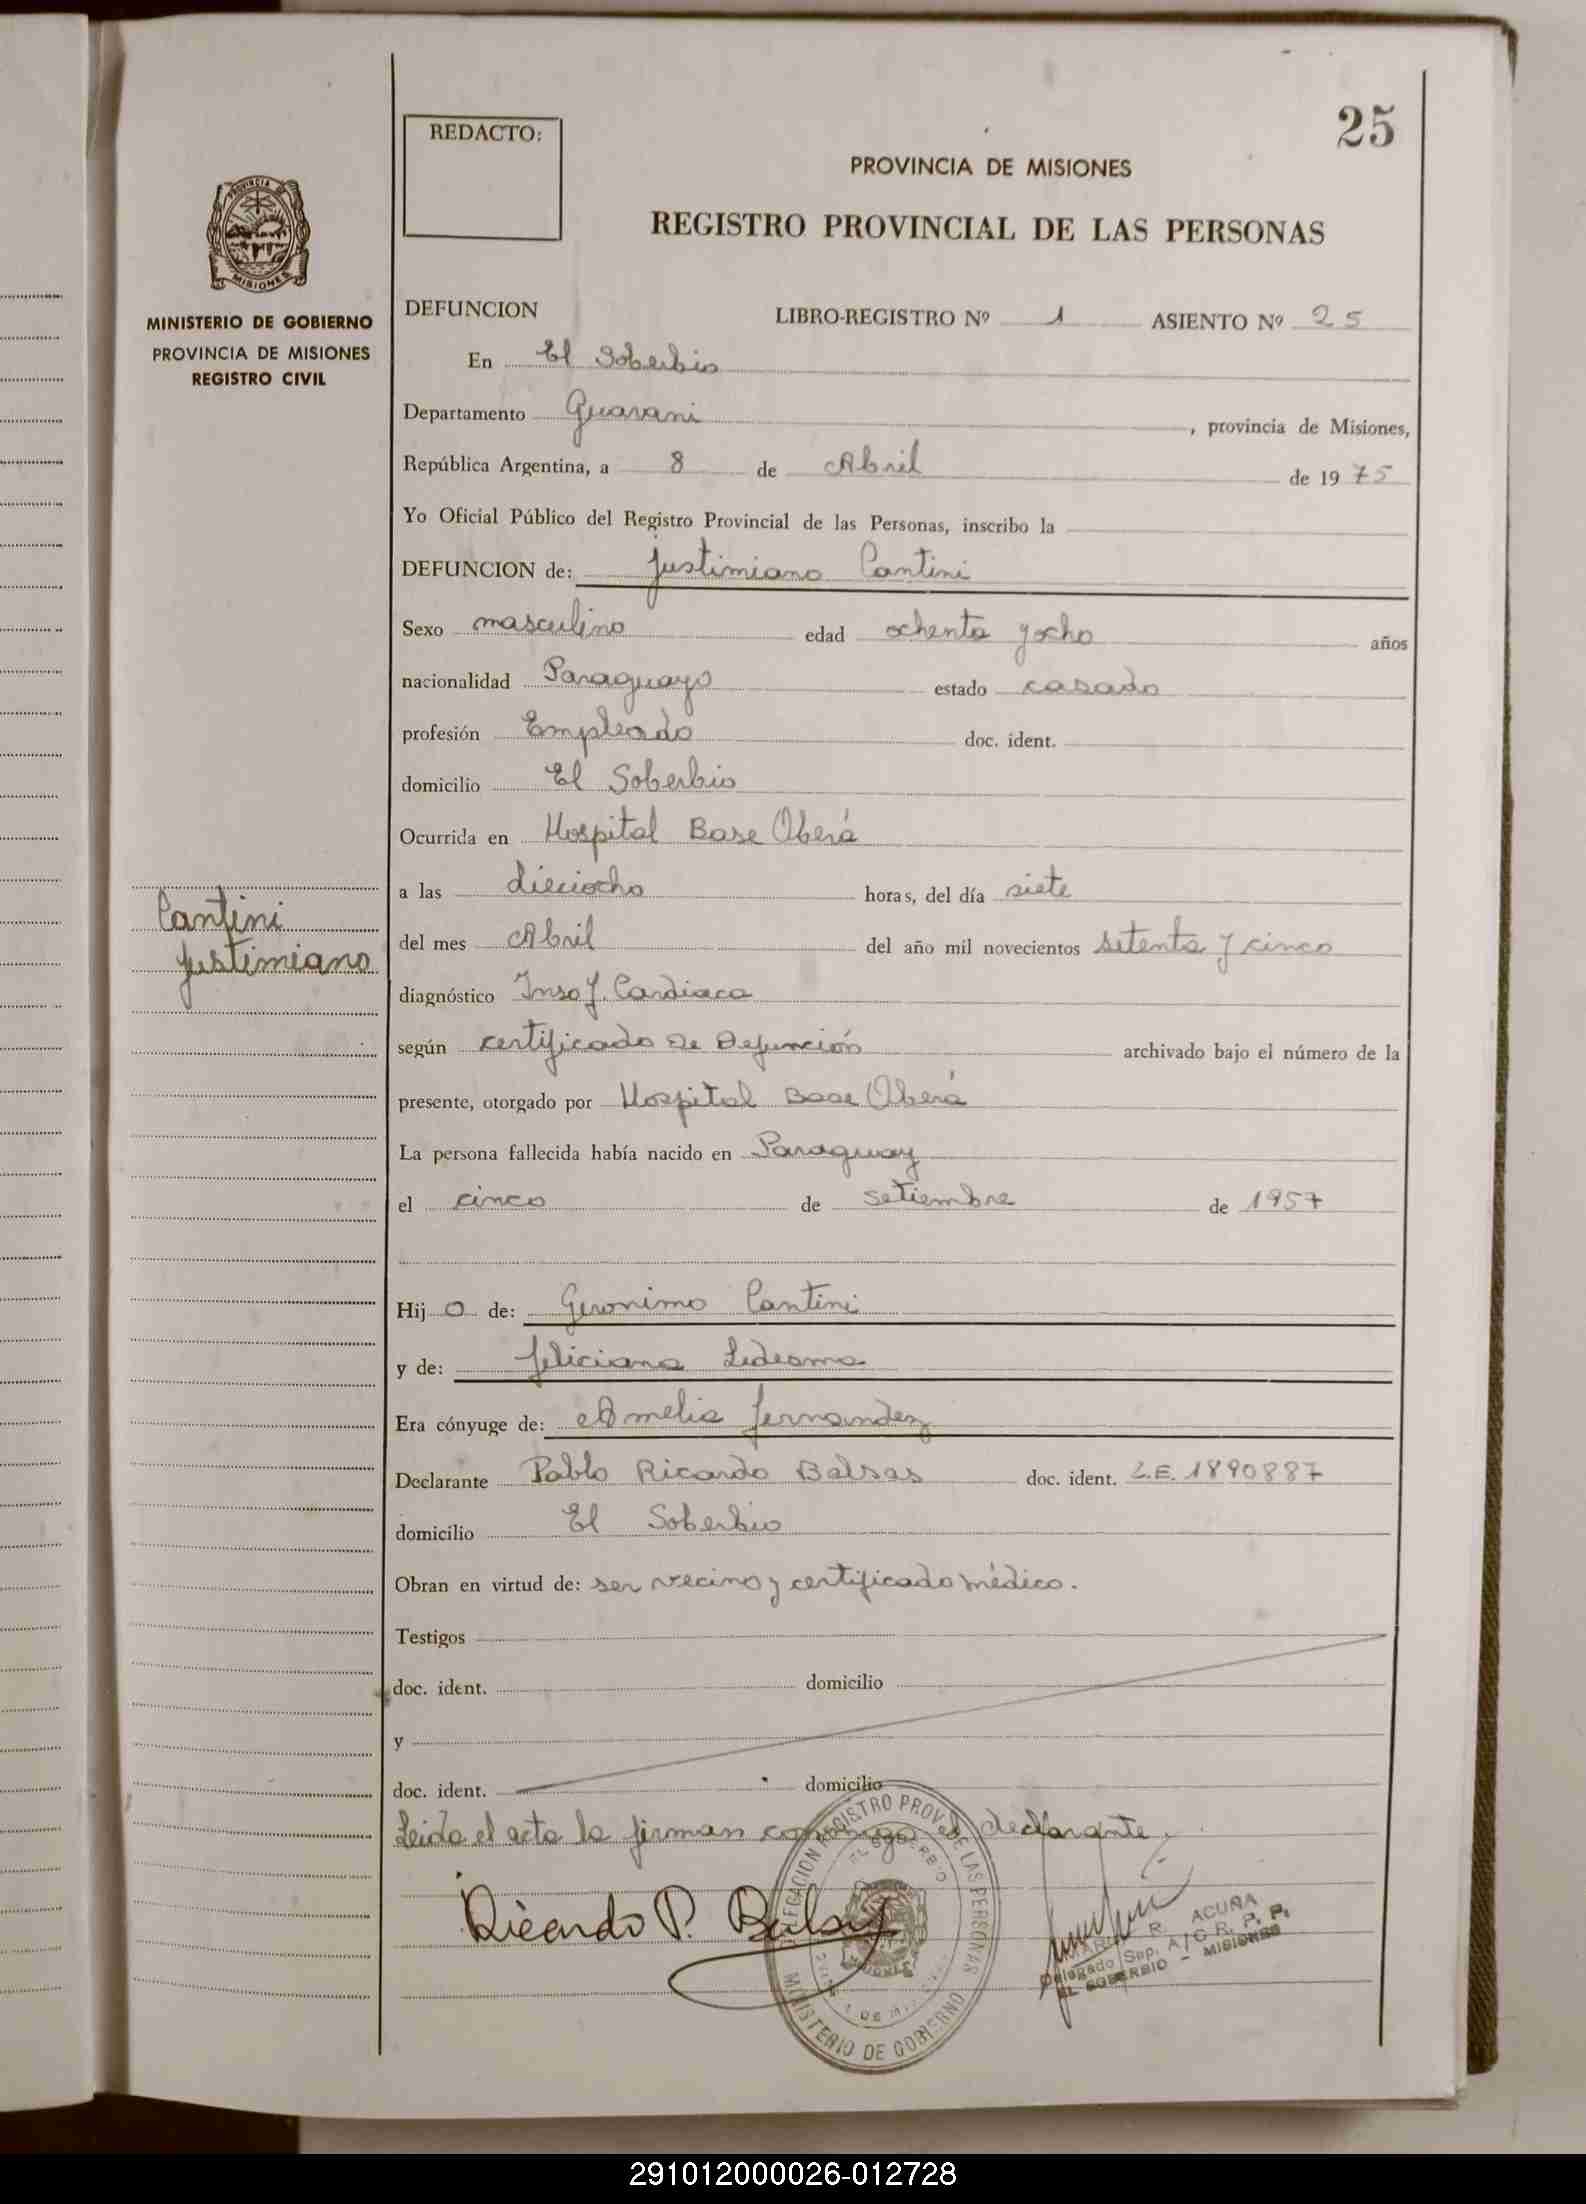 25
REDACTO:
PROVINCIA DE MISIONES
REGISTRO PROVINCIAL DE LAS PERSONAS
PROVINCIA DE
MISIONES
MINISTERIO DE GOBIERNO
PROVINCIA DE MISIONES
REGISTRO CIVIL
DEFUNCION LIBRO-REGISTRO Nº 1 ASIENTO Nº 25
En El Soberbio
Departamento Guarani, provincia de Misiones,
República Argentina, a 8 de Abril de 1975
Yo Oficial Público del Registro Provincial de las Personas, inscribo la
DEFUNCION de: Justimiano Cantini
Sexo masculino edad ochenta y ocho años
nacionalidad Paraguayo estado casado
profesión Empleado doc. ident.
domicilio El Soberbio
Ocurrida en Hospital Base Oberá
a las dieciocho horas, del día siete
Cantini
Justimiano
del mes Abril del año mil novecientos setenta y cinco
diagnóstico Insof. Cardiaca
según certificado de Defunción archivado bajo el número de la
presente, otorgado por Hospital Base Oberá
La persona fallecida había nacido en Paraguay
el cinco de setiembre de 1957
Hijo de: Geronimo Cantini
y de: Feliciana Ledesma
Era cónyuge de: Amelia Fernandez
Declarante Pablo Ricardo Balsas doc. ident. L.E. 1890887
domicilio El Soberbio
Obran en virtud de: ser vecino y certificado médico.
Testigos
doc. ident. domicilio
y
doc. ident. domicilio
Leida el acta la firman conmigo el declarante.
DELEGACION REGISTRO PROV. DE LAS PERSONAS
EL SOBERBIO
MISIONES
MINISTERIO DE GOBIERNO
Ricardo P. Balsas
R. ACUÑA
Delegado Sup. A/C R. P. P.
EL SOBERBIO - MISIONES
291012000026-012728